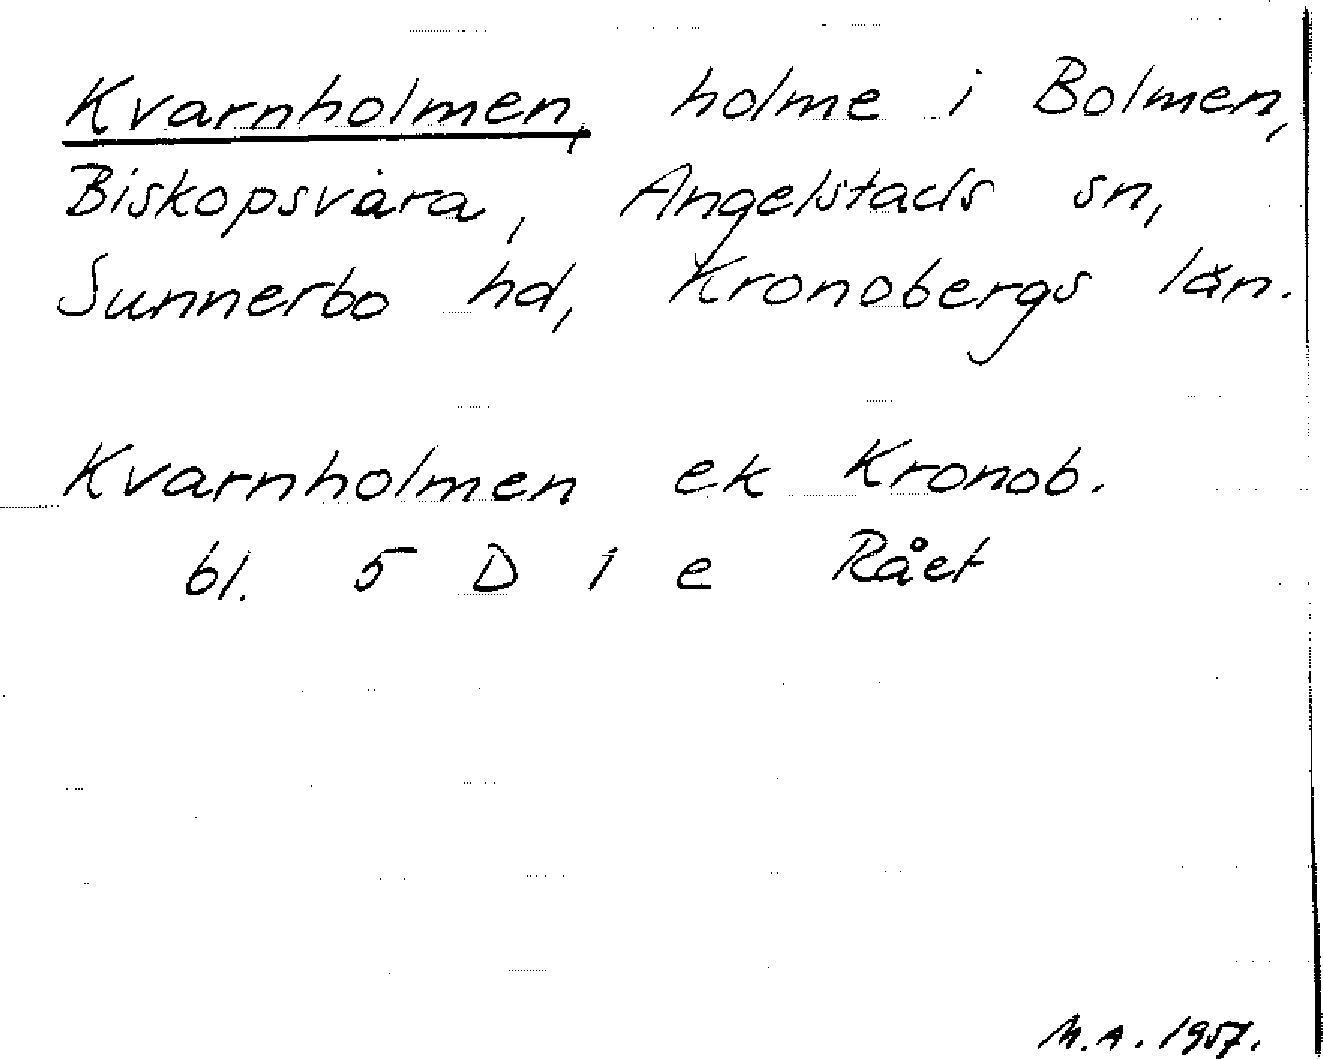 Kvarnholmen, holme i Bolmen,
Biskopsvara, Angelstads sn,
Sunnerbo hd, Kronobergs län.
Kvarnholmen ek Kronob.
bl. 5 D 1 e Rået
M.A. 1957.